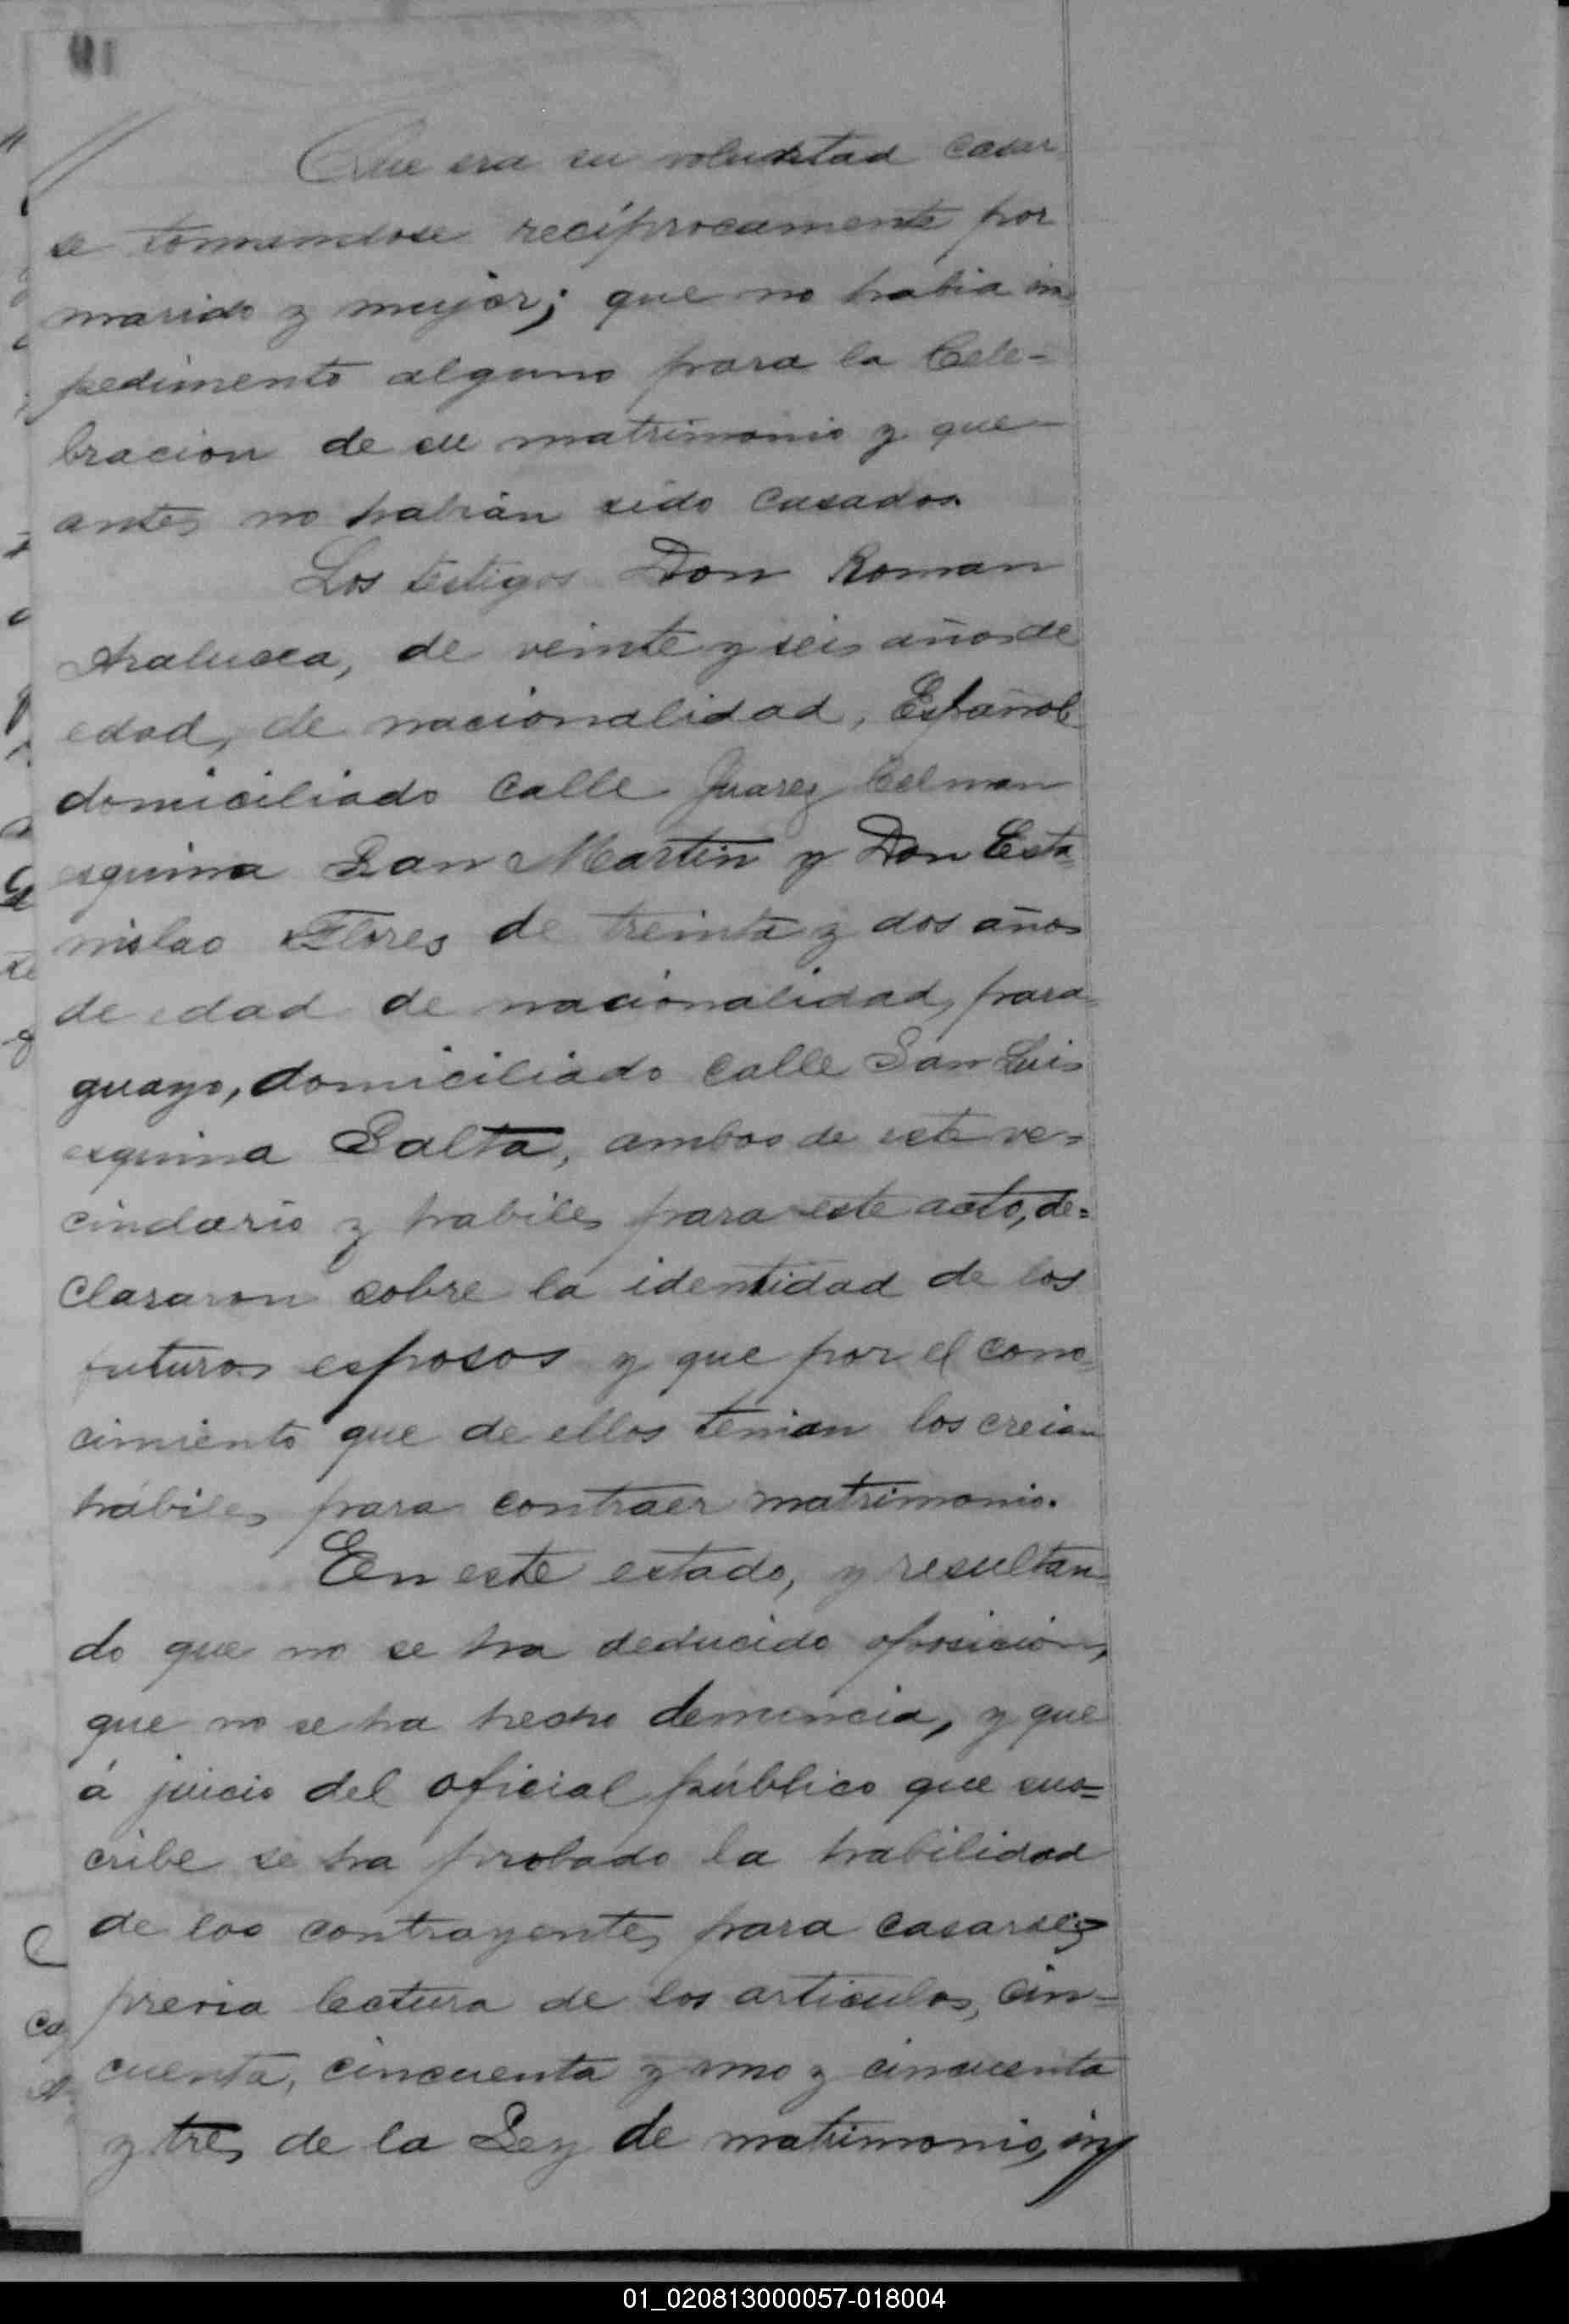 Que era su voluntad casar
se tomandose recíprocamente por
marido y mujer; que no habia im
pedimento alguno para la Cele-
bracion de su matrimonio y que
antes no habian sido casados.
Los testigos Don Roman
Aralucea, de veinte y seis años de
edad, de nacionalidad, Español
domiciliado calle Juarez Celman
esquina San Martin y Don Esta
nislao Flores de treinta y dos años
de edad de nacionalidad, para-
guayo, domiciliado calle San Luis
esquina Salta, ambos de este ve-
cindario y habiles para este acto, de=
clararon sobre la identidad de los
futuros esposos y que por el cono-
cimiento que de ellos tenian los creian
hábiles para contraer matrimonio.
En este estado, y resultan
do que no se ha deducido oposicion,
que no se ha hecho denuncia, y que
á juicio del oficial público que sus=
cribe se ha probado la habilidad
de los contrayentes para casarse;
previa lectura de los articulos, cin-
cuenta, cincuenta y uno y cincuenta
y tres de la Ley de matrimonio, in//
01_020813000057-018004